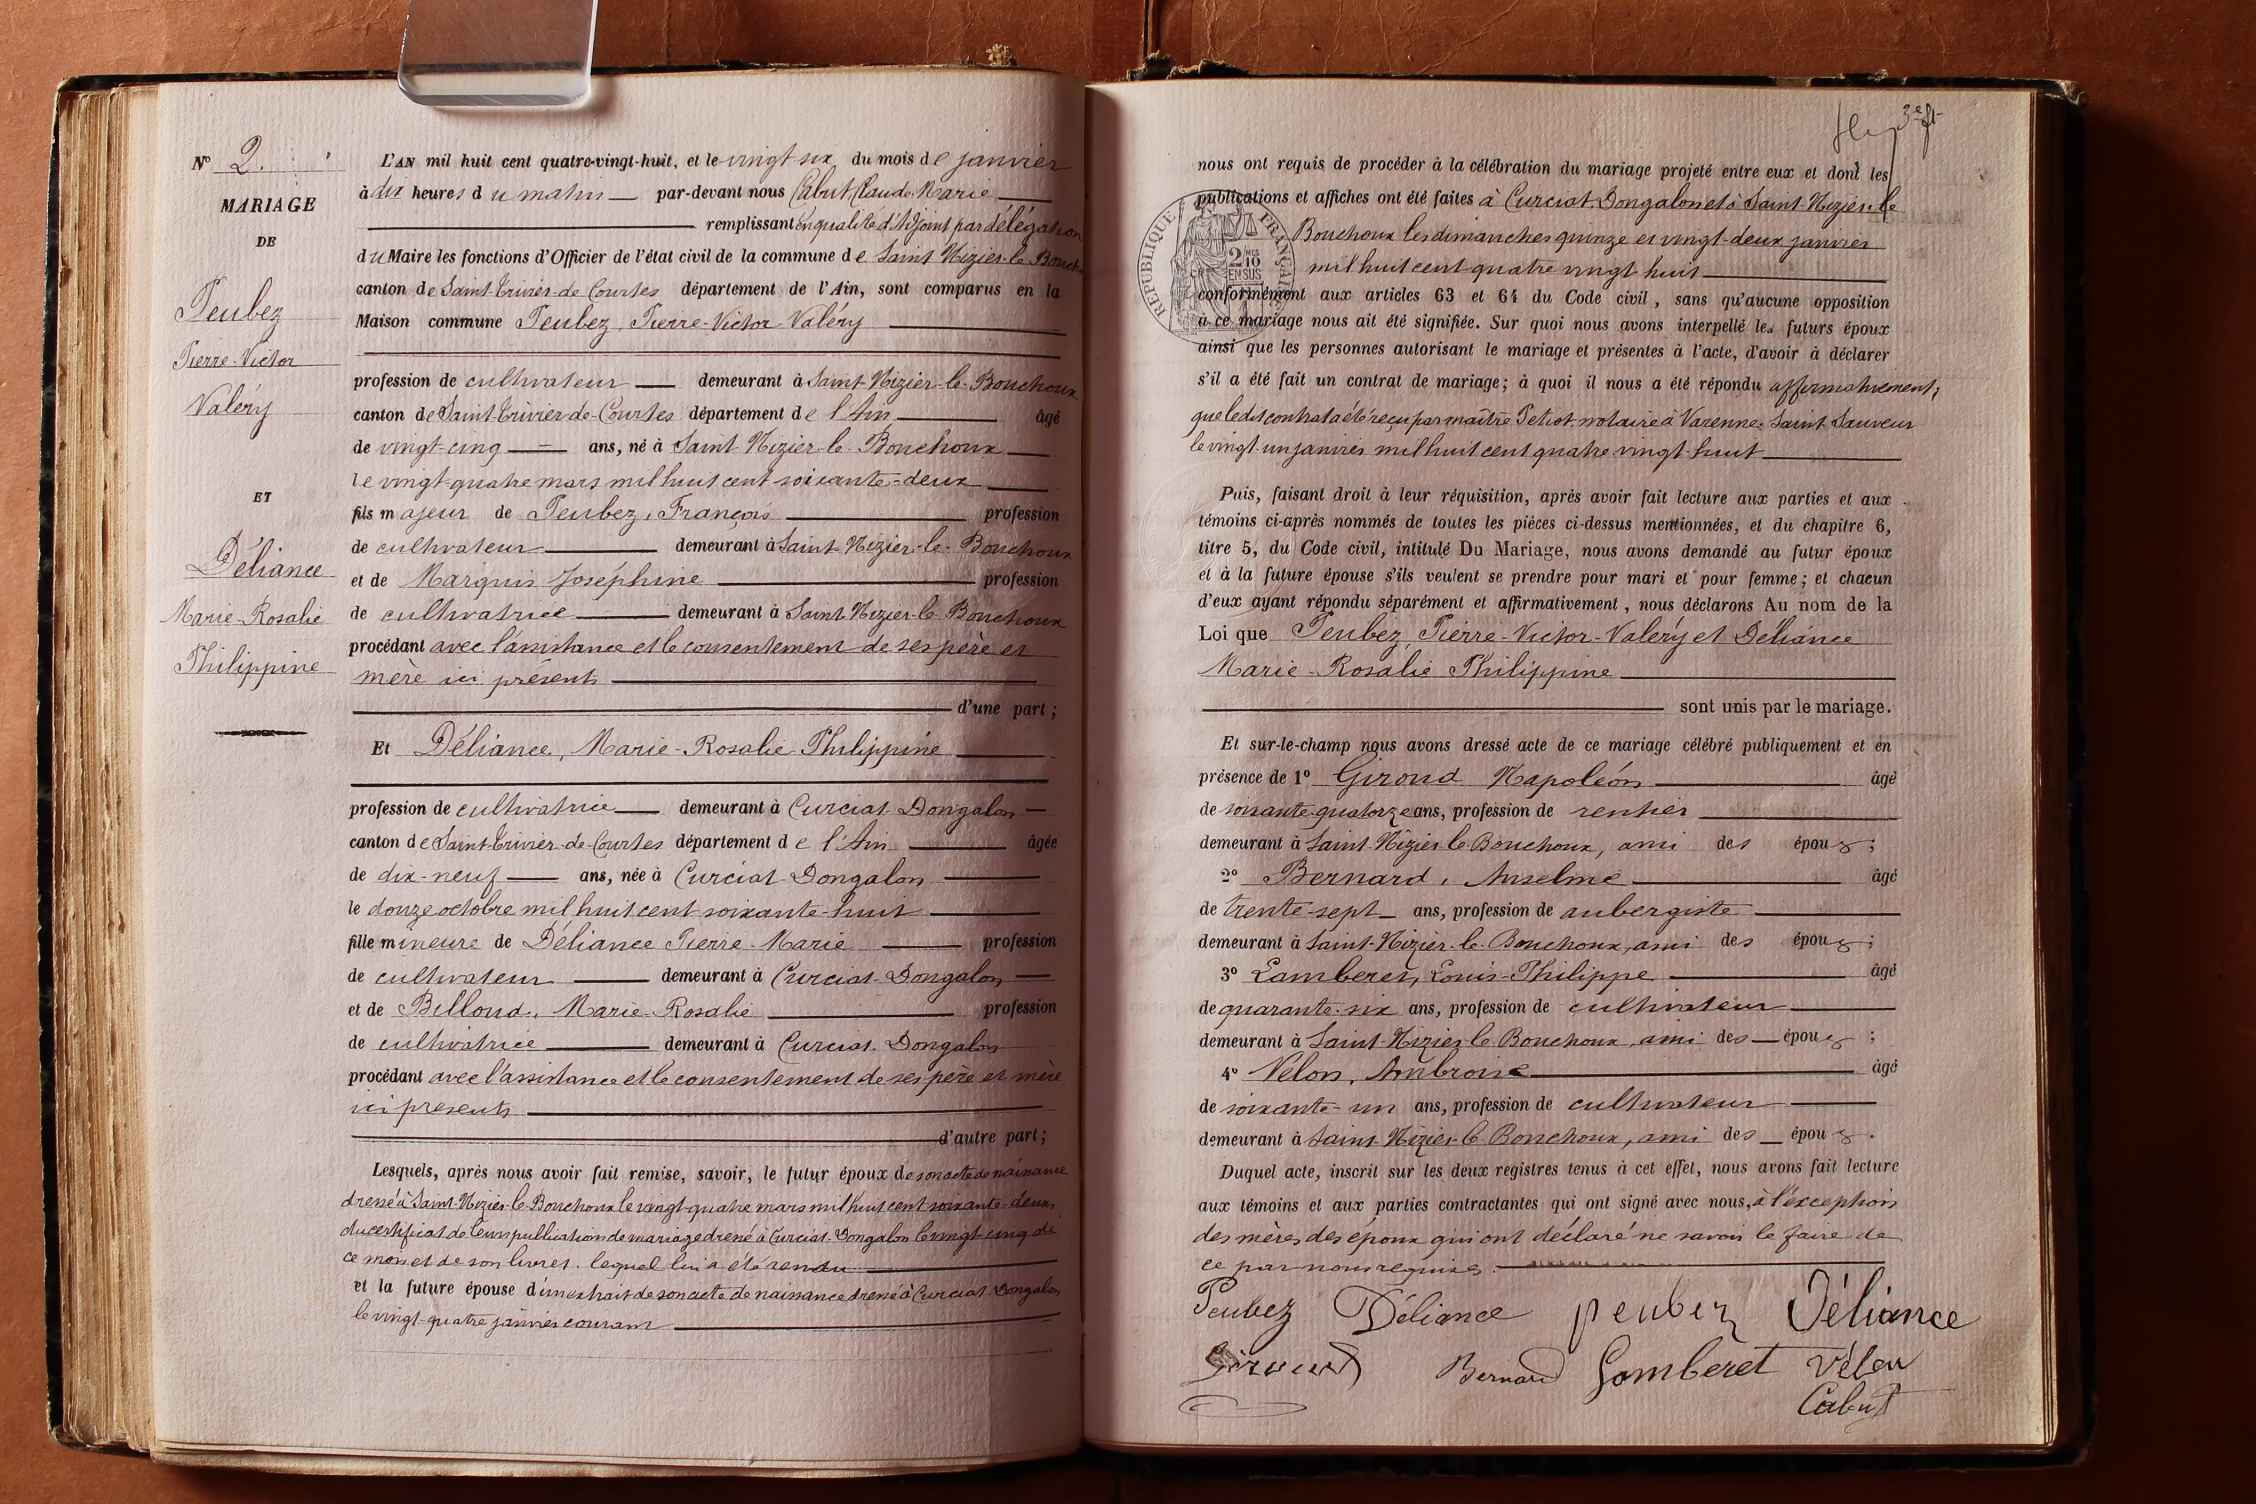 Nº 2.
MARIAGE
DE
Peubez
Pierre-Victor
Valéry
ET
Déliance
Marie-Rosalie
Philippine
L'AN mil huit cent quatre-vingt-huit, et le vingt six du mois de janvier
à dix heures du matin par-devant nous Cabut, Claude-Marie
remplissant en qualité d'Adjoint par délégation
du Maire les fonctions d'Officier de l'état civil de la commune de Saint Nizier-le Bouch.
canton de Saint-Trivier-de Courtes département de l'Ain, sont comparus en la
Maison commune Peubez, Pierre-Victor-Valéry
profession de cultivateur demeurant à Saint-Nizier-le-Bouchoux
canton de Saint-Trivier-de-Courtes département de l'Ain âgé
de vingt-cinq ans, né à Saint Nizier-le-Bouchoux
le vingt-quatre mars mil huit cent soixante-deux
fils majeur de Peubez, François profession
de cultivateur demeurant à Saint-Nizier-le-Bouchoux
et de Marquis Joséphine profession
de cultivatrice demeurant à Saint Nizier-le Bouchoux
procédant avec l'assistance et le consentement de ses père et
mère ici présents
d'une part;
Et Déliance, Marie-Rosalie-Philippine
profession de cultivatrice demeurant à Curciat-Dongalon
canton de Saint-Trivier-de-Courtes département de l'Ain âgée
de dix-neuf ans, née à Curciat-Dongalon
le douze octobre mil huit cent soixante-huit
fille mineure de Déliance Pierre-Marie profession
de cultivateur demeurant à Curciat-Dongalon
et de Billoud, Marie-Rosalie profession
de cultivatrice demeurant à Curciat-Dongalon
procédant avec l'assistance et le consentement de ses père et mère
ici présents
d'autre part;
Lesquels, après nous avoir fait remise, savoir, le futur époux de son acte de naissance
dressé à Saint-Nizier-le-Bouchoux le vingt-quatre mars mil huit cent soixante-deux,
du certificat de leurs publications de mariage dressé à Curciat-Dongalon le vingt-cinq de
ce mois et de son livret, lequel lui a été rendu
et la future épouse d'un extrait de son acte de naissance dressé à Curciat-Dongalon
le vingt-quatre janvier courant
3e
nous ont requis de procéder à la célébration du mariage projeté entre eux et dont les
publications et affiches ont été faites à Curciat-Dongalon et à Saint-Nizier-le
Bouchoux les dimanches quinze et vingt-deux janvier
mil huit cent quatre vingt huit
RÉPUBLIQUE FRANÇAISE
2 MES 10 EN SUS
conformément aux articles 63 et 64 du Code civil, sans qu'aucune opposition
à ce mariage nous ait été signifiée. Sur quoi nous avons interpellé les futurs époux
ainsi que les personnes autorisant le mariage et présentes à l'acte, d'avoir à déclarer
s'il a été fait un contrat de mariage; à quoi il nous a été répondu affirmativement,
que ledit contrat a été reçu par maître Petiot notaire à Varenne-Saint Sauveur
le vingt-un janvier mil huit cent quatre vingt-huit
Puis, faisant droit à leur réquisition, après avoir fait lecture aux parties et aux
témoins ci-après nommés de toutes les pièces ci-dessus mentionnées, et du chapitre 6,
titre 5, du Code civil, intitulé Du Mariage, nous avons demandé au futur époux
et à la future épouse s'ils veulent se prendre pour mari et pour femme; et chacun
d'eux ayant répondu séparément et affirmativement, nous déclarons Au nom de la
Loi que Peubez, Pierre-Victor-Valéry et Déliance
Marie-Rosalie Philippine
sont unis par le mariage.
Et sur-le-champ nous avons dressé acte de ce mariage célébré publiquement et en
présence de 1º Giroud Napoléon âgé
de soixante-quatorze ans, profession de rentier
demeurant à Saint-Nizier-le-Bouchoux, ami des époux;
2º Bernard, Anselme âgé
de trente-sept ans, profession de aubergiste
demeurant à Saint-Nizier-le-Bouchoux, ami des époux;
3º Lamberet, Louis-Philippe âgé
de quarante-six ans, profession de cultivateur
demeurant à Saint-Nizier-le-Bouchoux, ami des époux;
4º Velon, Ambroise âgé
de soixante-un ans, profession de cultivateur
demeurant à Saint-Nizier-le-Bouchoux, ami des époux.
Duquel acte, inscrit sur les deux registres tenus à cet effet, nous avons fait lecture
aux témoins et aux parties contractantes qui ont signé avec nous, à l'exception
des mères des époux qui ont déclaré ne savoir le faire de
ce par nous requises.
Peubez Déliance peubez Déliance
Giroud Bernard Gomberet Vélon
Cabut